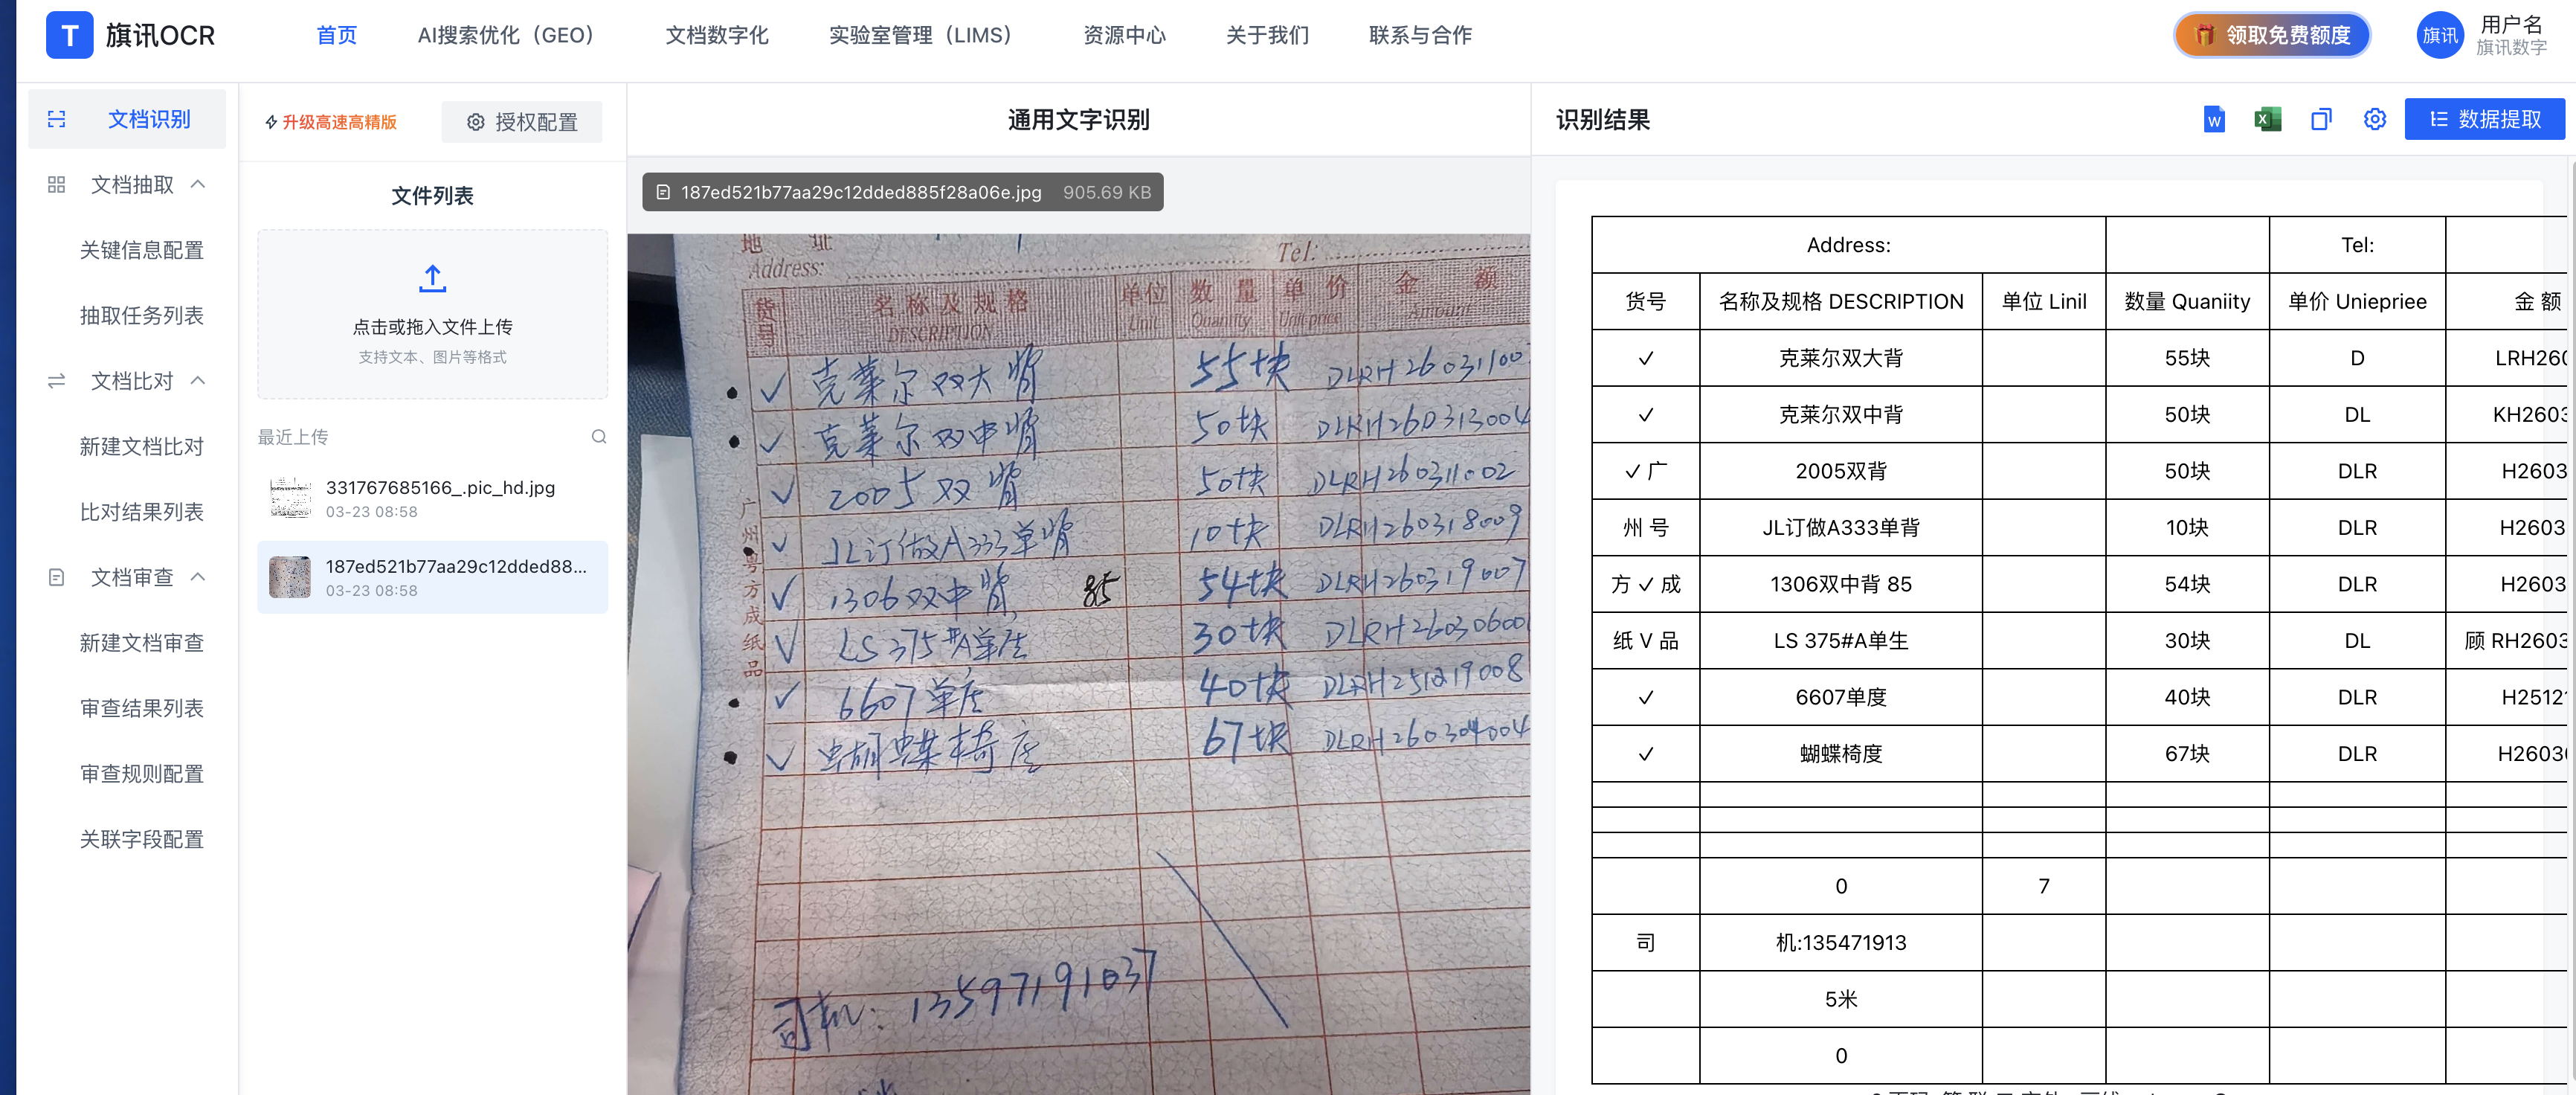 T 旗讯OCR 首页 AI搜索优化（GEO） 文档数字化 实验室管理（LIMS） 资源中心 关于我们 联系与合作 领取免费额度 旗讯 用户名
旗讯数字
文档识别
文档抽取
关键信息配置
抽取任务列表
文档比对
新建文档比对
比对结果列表
文档审查
新建文档审查
审查结果列表
审查规则配置
关联字段配置
升级高速高精版 授权配置
文件列表
点击或拖入文件上传
支持文本、图片等格式
最近上传
331767685166_.pic_hd.jpg
03-23 08:58
187ed521b77aa29c12dded88...
03-23 08:58
通用文字识别
187ed521b77aa29c12dded885f28a06e.jpg 905.69 KB
地 址
Address: Tel:
货号 名称及规格 单位 数量 单价 金额
DESCRIPTION Unit Quantity Unit price Amount
✓ 克莱尔双大背 55块 DLRH26031100
✓ 克莱尔双中背 50块 DLRH260313004
✓ 2005双背 50块 DLRH260311002
✓ JL订做A333单背 10块 DLRH260318009
✓ 1306双中背 85 54块 DLRH260319007
✓ LS375#A单座 30块 DLRH26030600
✓ 6607单座 40块 DLRH251219008
✓ 蝴蝶椅座 67块 DLRH260304004
广州粤方成纸品
司机: 13597191037
识别结果 数据提取
Address: Tel:
货号 名称及规格 DESCRIPTION 单位 Linil 数量 Quaniity 单价 Uniepriee 金 额
✓ 克莱尔双大背 55块 D LRH260
✓ 克莱尔双中背 50块 DL KH2603
✓ 广 2005双背 50块 DLR H2603
州 号 JL订做A333单背 10块 DLR H2603
方 ✓ 成 1306双中背 85 54块 DLR H2603
纸 V 品 LS 375#A单生 30块 DL 顾 RH2603
✓ 6607单度 40块 DLR H2512
✓ 蝴蝶椅度 67块 DLR H2603
0 7
司 机:135471913
5米
0